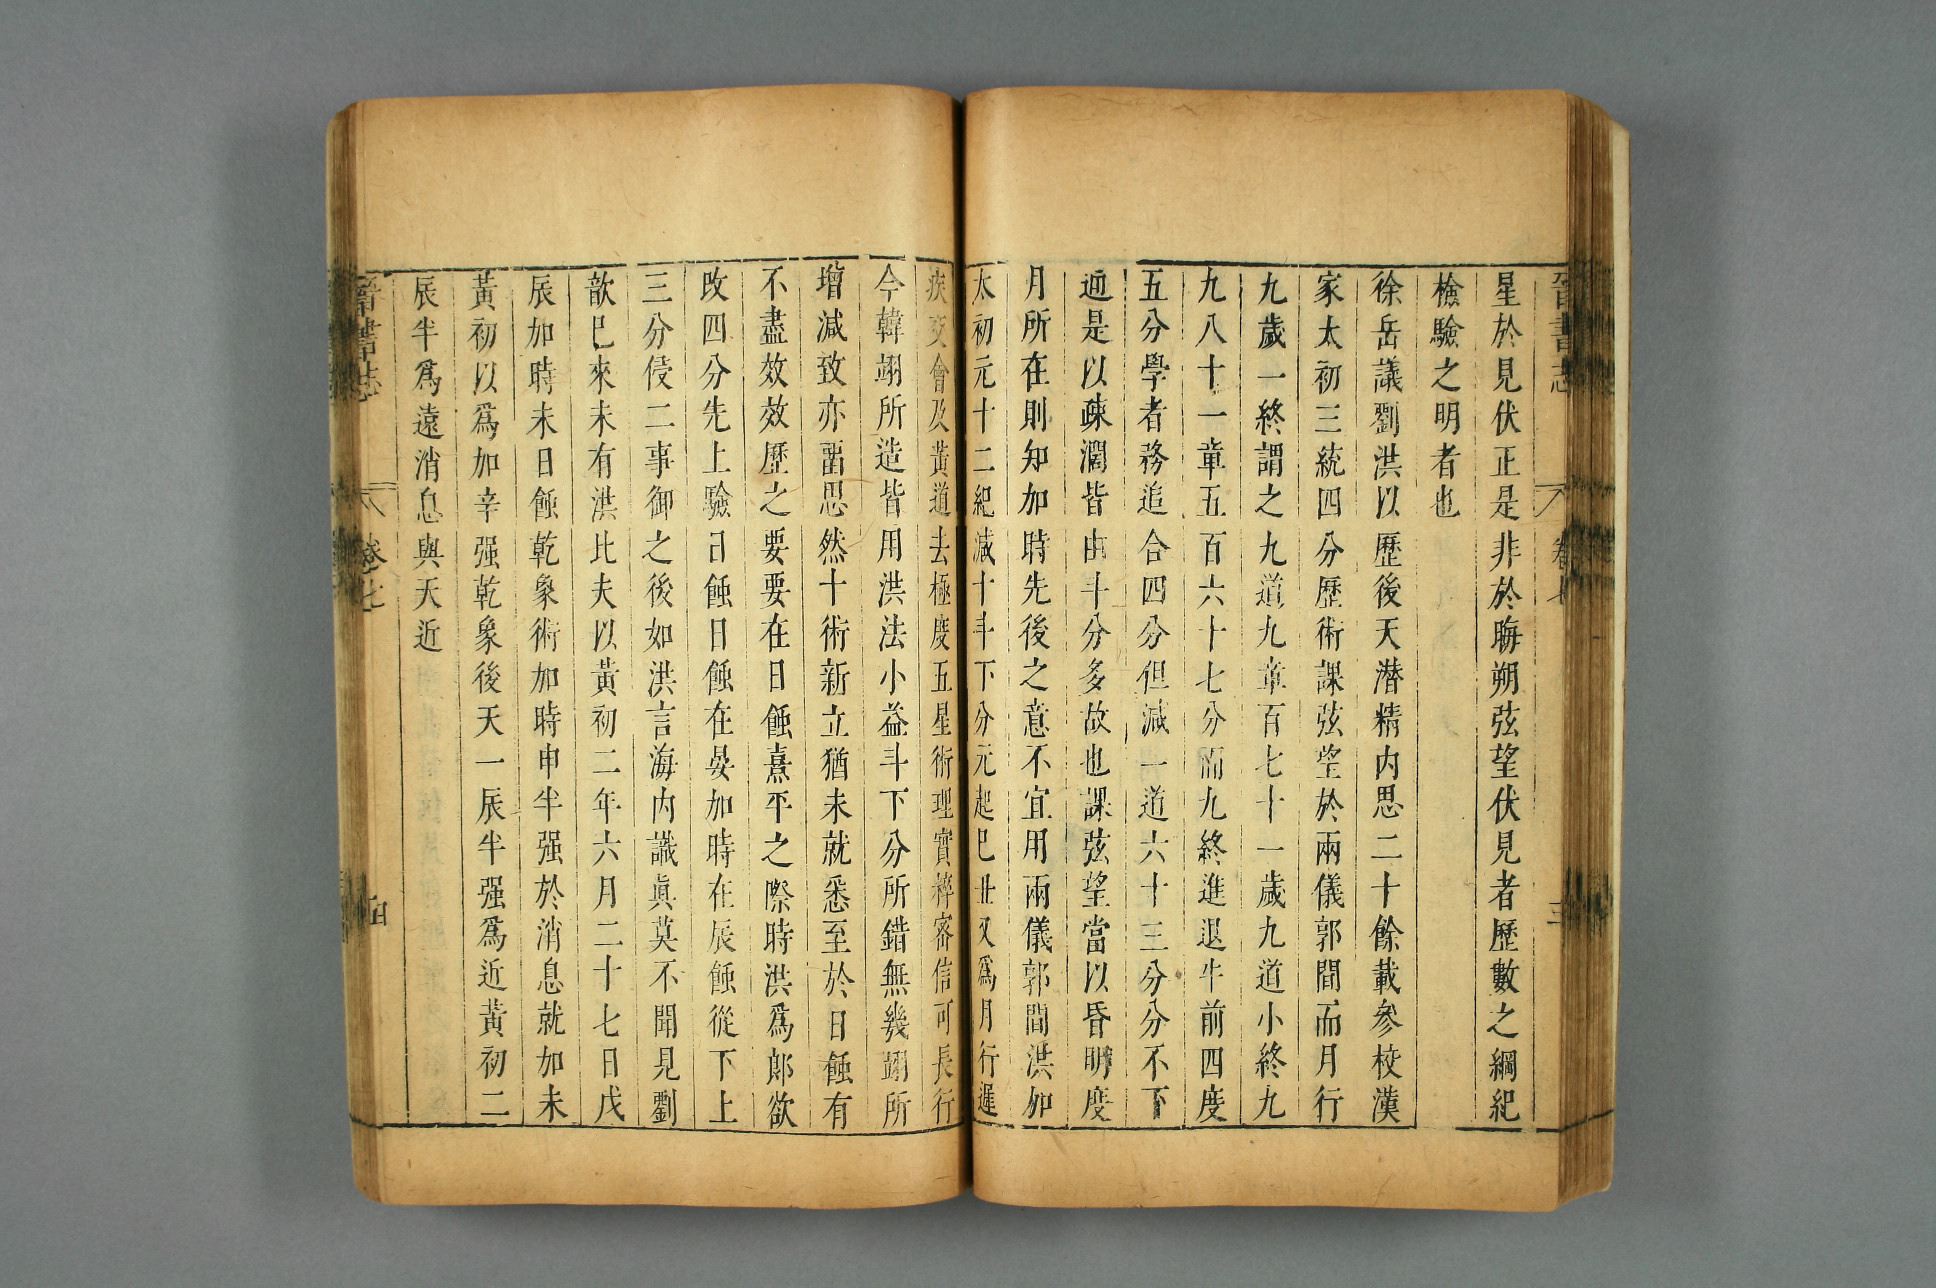 晉書志 卷七 三
星於見伏正是非於晦朔弦望伏見者歷數之綱紀
檢驗之明者也
徐岳議劉洪以歷後天潛精內思二十餘載參校漢
家太初三統四分歷術課弦望於兩儀郭間而月行
九歲一終謂之九道九章百七十一歲九道小終九
九八十一章五百六十七分而九終進退牛前四度
五分學者務追合四分但減一道六十三分分不下
通是以疎濶皆由斗分多故也課弦望當以昏明度
月所在則知加時先後之意不宜用兩儀郭間洪加
太初元十二紀減十斗下分元起己丑又爲月行遲
疾交會及黃道去極度五星術理實粹密信可長行
今韓翊所造皆用洪法小益斗下分所錯無幾翊所
增減致亦畱思然十術新立猶未就悉至於日蝕有
不盡效效歷之要要在日蝕熹平之際時洪爲郎欲
改四分先上驗日蝕日蝕在晏加時在辰蝕從下上
三分侵二事御之後如洪言海內識真莫不聞見劉
歆已來未有洪比夫以黃初二年六月二十七日戊
辰加時未日蝕乾象術加時申半强於消息就加未
黃初以爲加辛强乾象後天一辰半强爲近黃初二
辰半爲遠消息與天近
晉書志 卷七